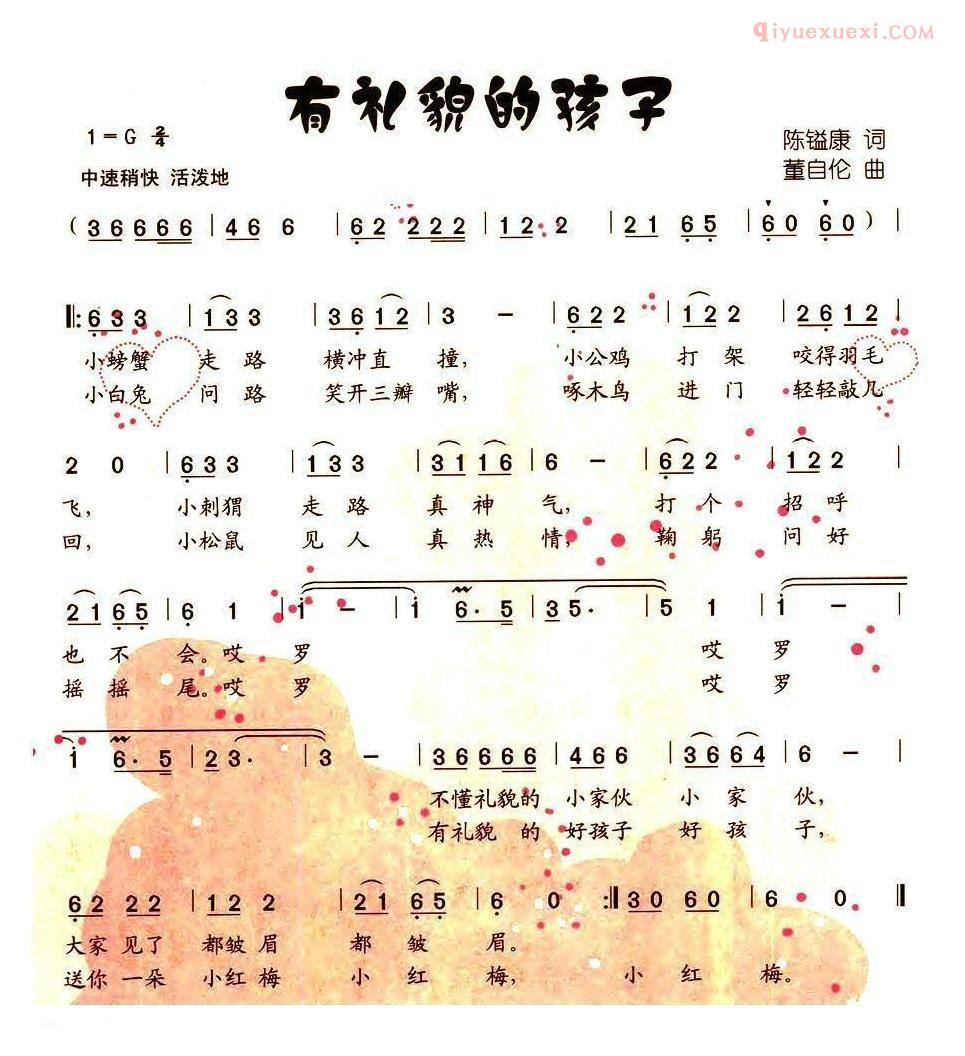 qiyuexuexi.COM
有礼貌的孩子
1=G 2/4
陈镒康 词
中速稍快 活泼地
董自伦 曲
( 3 6 6 6 6 | 4 6 6 6 | 6 2 2 2 2 | 1 2 2 | 2 1 6 5 | 6 0 6 0 ) |
‖: 6 3 3 | 1 3 3 | 3 6 1 2 | 3 – | 6 2 2 | 1 2 2 | 2 6 1 2 |
小螃蟹 走 路 横冲直 撞, 小公鸡 打 架 咬得羽毛
小白兔 问 路 笑开三瓣 嘴, 啄木鸟 进 门 轻轻敲几
2 0 | 6 3 3 | 1 3 3 | 3 1 1 6 | 6 – | 6 2 2 | 1 2 2 |
飞, 小刺猬 走 路 真 神 气, 打 个 招 呼
回, 小松鼠 见 人 真 热 情, 鞠 躬 问 好
2 1 6 5 | 6 1 | i – | 6· 5 | 3 5· | 5 1 | i – |
也 不 会。哎 罗 哎 罗
摇 摇 尾。哎 罗 哎 罗
i 6· 5 | 2 3· | 3 – | 3 6 6 6 6 | 4 6 6 | 3 6 6 4 | 6 – |
不懂礼貌的 小家伙 小 家 伙,
有礼貌 的 好孩子 好 孩 子,
6 2 2 2 | 1 2 2 | 2 1 6 5 | 6 0 :‖ 3 0 6 0 | 6 0 ‖
大家 见了 都皱眉 都 皱 眉。
送你 一朵 小红梅 小 红 梅, 小 红 梅。